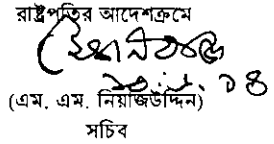 রাষ্ট্রপতির আদেশক্রমে
(এম. এম. নিয়াজউদ্দিন)
সচিব